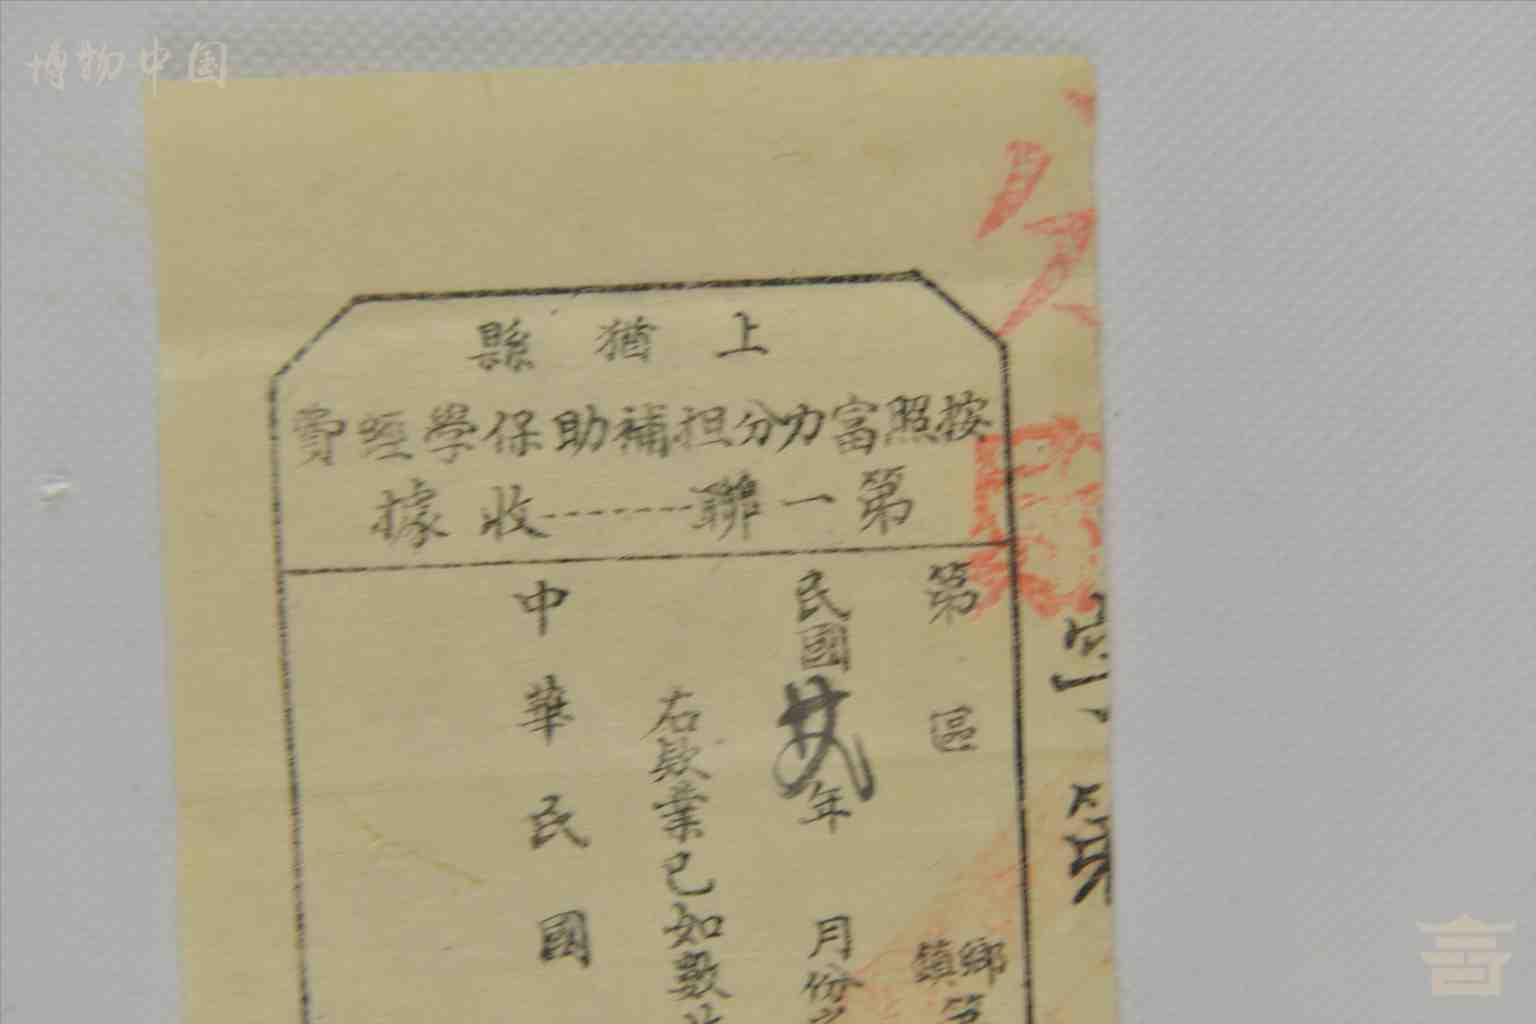 博物中国
上猶縣
按照富力分担補助保學經費
第一聯………收據
第 區 鄉鎮第
民國廿 年 月份
右欵業已如數
中華民國